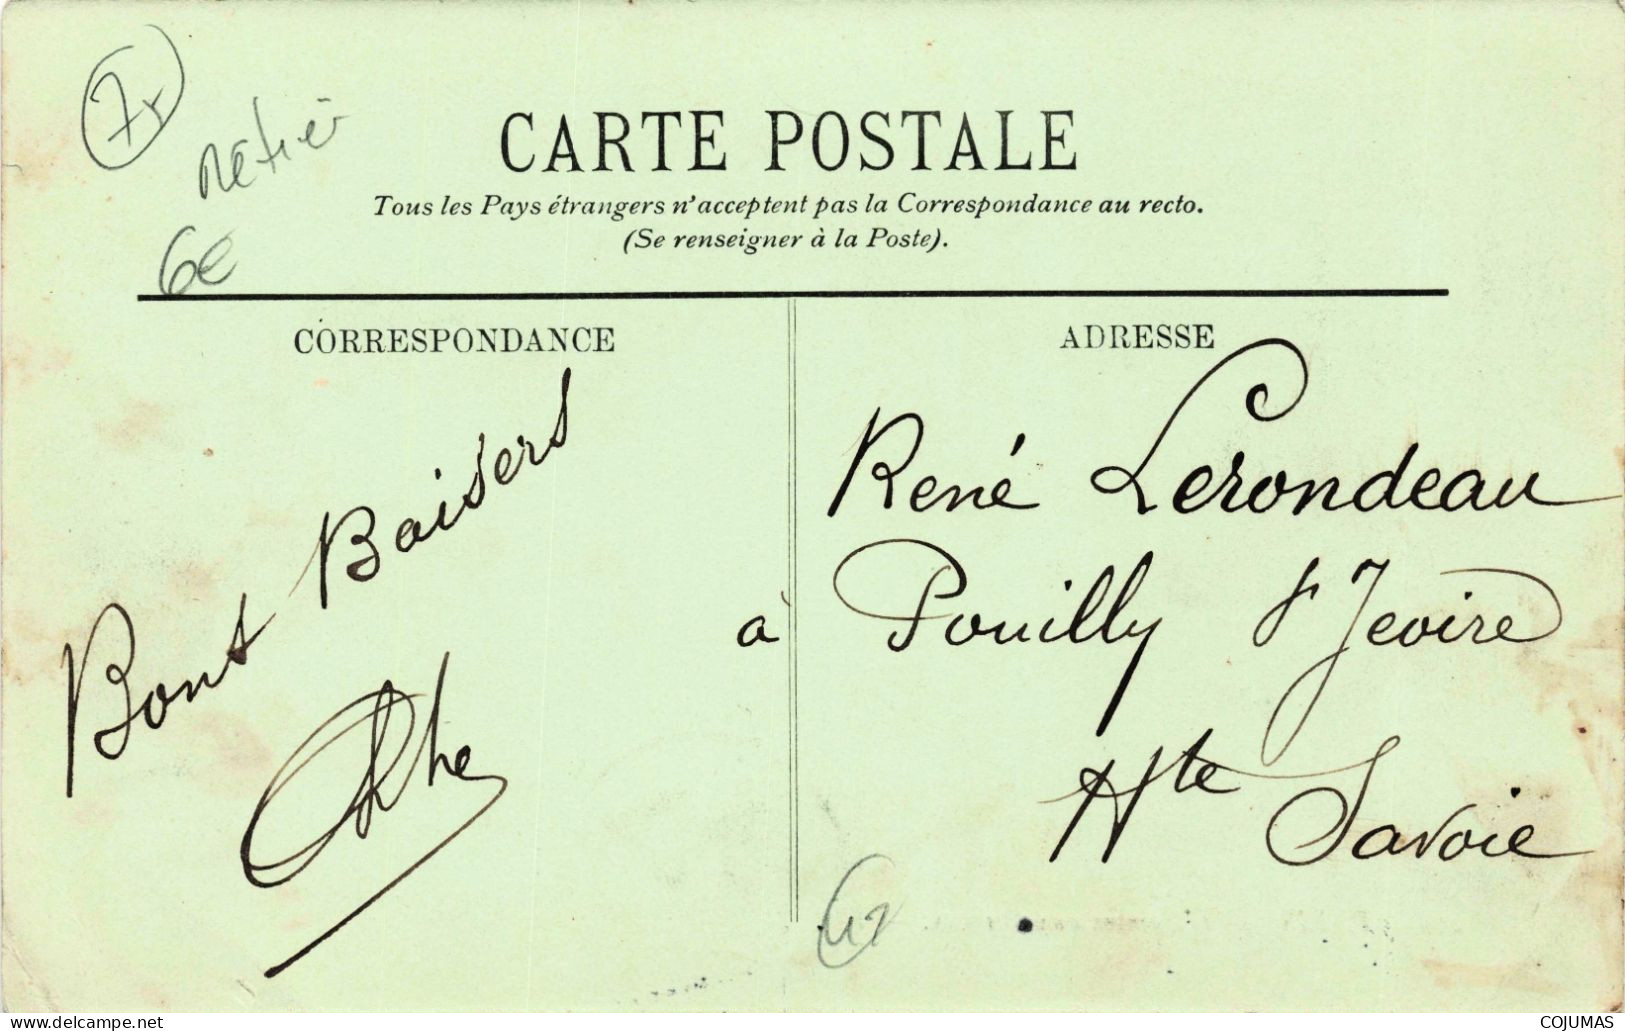 CARTE POSTALE
Tous les Pays étrangers n'acceptent pas la Correspondance au recto.
(Se renseigner à la Poste).
6€
CORRESPONDANCE
Bons Baisers
ADRESSE
René Lerondeau
à Pouilly St Jeoire
Hte Savoie
COJUMAS
https://www.delcampe.net